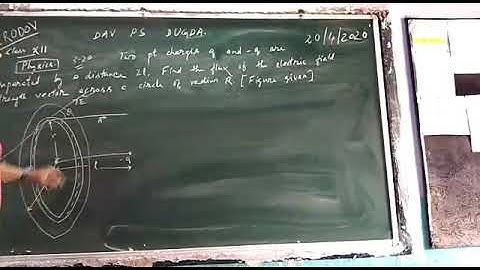 IRODOV
DAV PS DUGDA.
20/4/2020
Class XII
Physics
3.20 Two pt charges q and -q are
separated by a distance 2l. Find the flux of the electric field
strength vector across a circle of radius R [Figure given]
R
E
l
-q